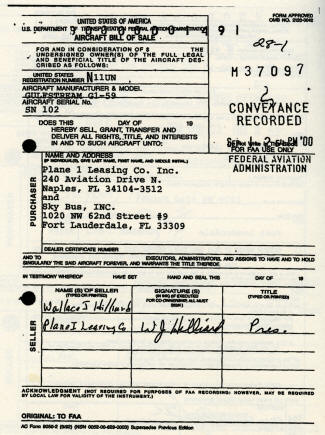 FORM APPROVED
OMB NO. 2120-0042
UNITED STATES OF AMERICA
U.S. DEPARTMENT OF TRANSPORTATION FEDERAL AVIATION ADMINISTRATION
0 0 0 0 0 0 0 4 9 1
AIRCRAFT BILL OF SALE
28-1
FOR AND IN CONSIDERATION OF $ THE
UNDERSIGNED OWNER(S) OF THE FULL LEGAL
AND BENEFICIAL TITLE OF THE AIRCRAFT DES-
CRIBED AS FOLLOWS:
UNITED STATES
REGISTRATION NUMBER N11UN
M37097
AIRCRAFT MANUFACTURER & MODEL
GULFSTREAM G1-59
AIRCRAFT SERIAL No.
SN 102
CONVEYANCE
RECORDED
DOES THIS DAY OF 19
HEREBY SELL, GRANT, TRANSFER AND
DELIVER ALL RIGHTS, TITLE, AND INTERESTS
IN AND TO SUCH AIRCRAFT UNTO:
PM '00
FOR FAA USE ONLY
FEDERAL AVIATION
ADMINISTRATION
NAME AND ADDRESS
(IF INDIVIDUAL(S), GIVE LAST NAME, FIRST NAME, AND MIDDLE INITIAL.)
PURCHASER
Plane 1 Leasing Co. Inc.
240 Aviation Drive N.
Naples, FL 34104-3512
and
Sky Bus, INC.
1020 NW 62nd Street #9
Fort Lauderdale, FL 33309
DEALER CERTIFICATE NUMBER
AND TO EXECUTORS, ADMINISTRATORS, AND ASSIGNS TO HAVE AND TO HOLD
SINGULARLY THE SAID AIRCRAFT FOREVER, AND WARRANTS THE TITLE THEREOF.
IN TESTIMONY WHEREOF HAVE SET HAND AND SEAL THIS DAY OF 19
SELLER
NAME (S) OF SELLER
(TYPED OR PRINTED)
SIGNATURE (S)
(IN INK) (IF EXECUTED
FOR CO-OWNERSHIP, ALL MUST
SIGN.)
TITLE
(TYPED OR PRINTED)
Wallace J Hilliard
Plane I Leasing Co W J Hilliard Pres.
ACKNOWLEDGMENT (NOT REQUIRED FOR PURPOSES OF FAA RECORDING: HOWEVER, MAY BE REQUIRED
BY LOCAL LAW FOR VALIDITY OF THE INSTRUMENT.)
ORIGINAL: TO FAA
AC Form 8050-2 (9/92) (NSN 0052-00-629-0003) Supersedes Previous Edition